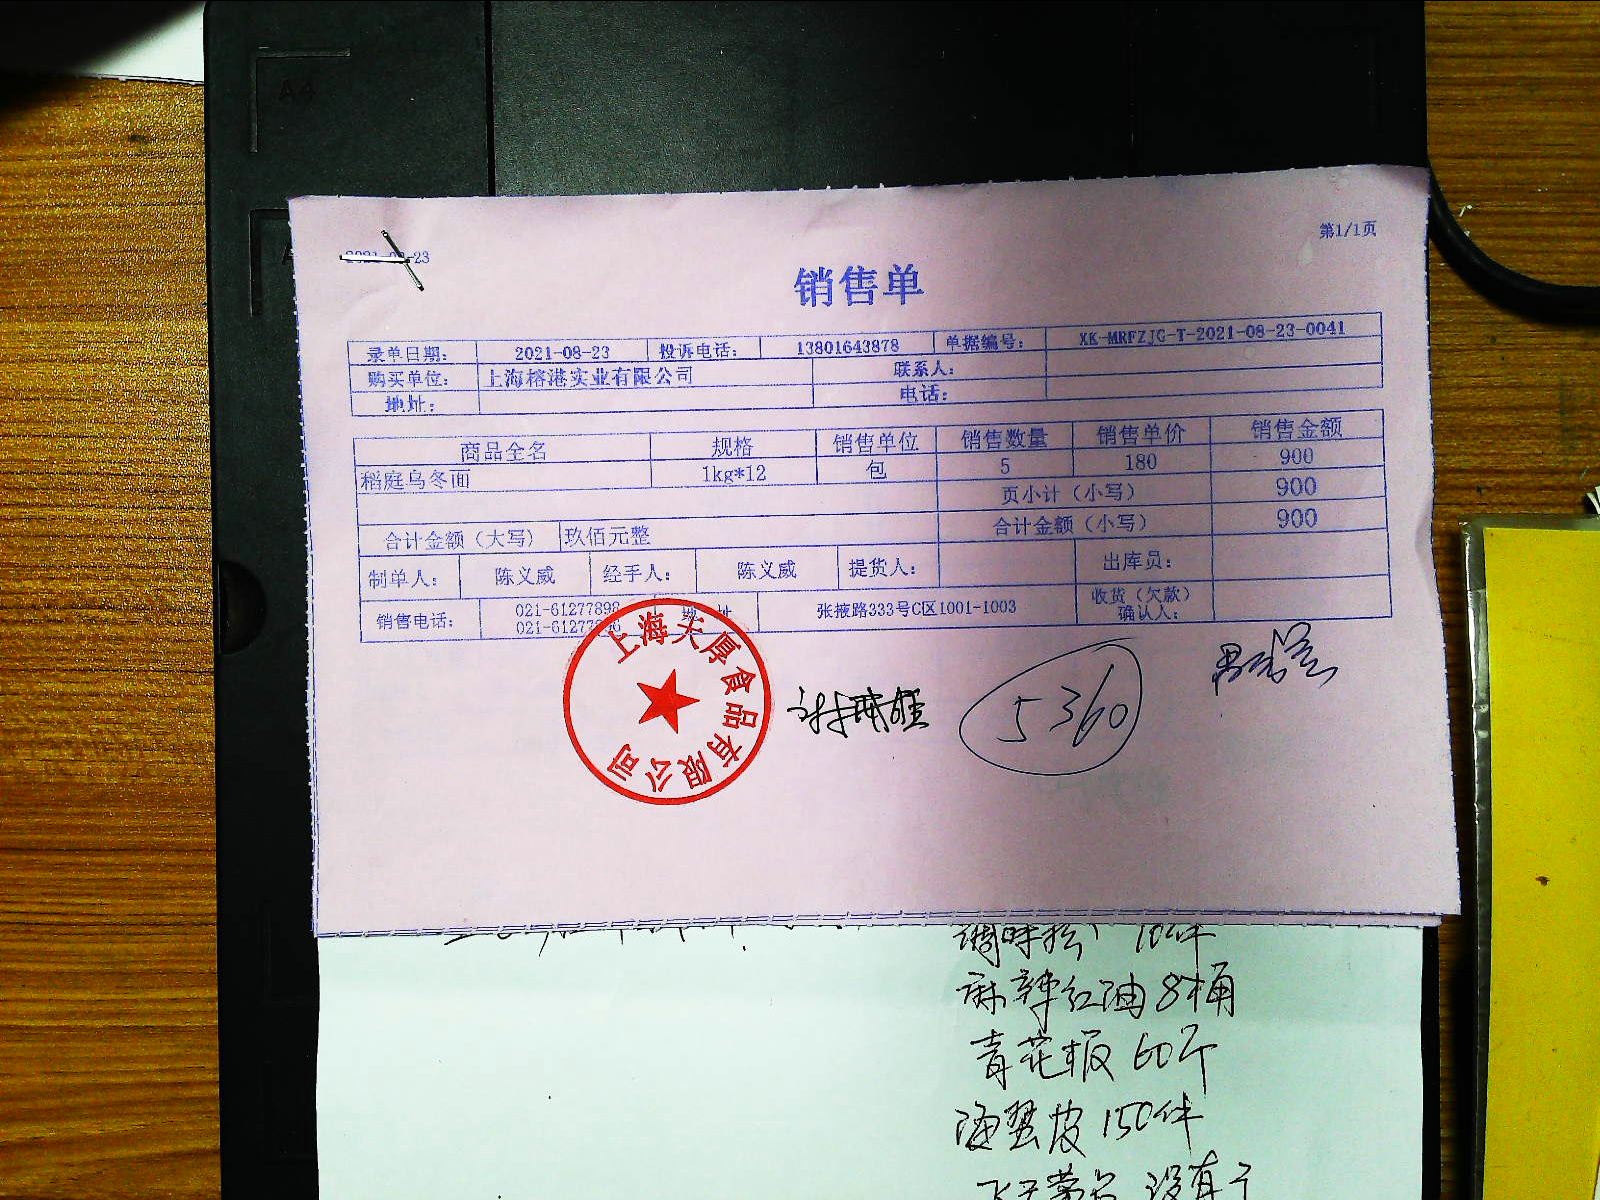 A4
第1/1页
2021-08-23
销售单
录单日期： 2021-08-23 投诉电话： 13801643878 单据编号： XK-MRFZJG-T-2021-08-23-0041
购买单位： 上海榕港实业有限公司 联系人：
地址： 电话：
商品全名 规格 销售单位 销售数量 销售单价 销售金额
稻庭乌冬面 1kg*12 包 5 180 900
页小计（小写） 900
合计金额（大写） 玖佰元整 合计金额（小写） 900
制单人： 陈义威 经手人： 陈义威 提货人： 出库员：
销售电话： 021-61277898 地 址 张掖路333号C区1001-1003 收货（欠款）
021-61277 确认人：
上海天厚食品有限公司
5360
10件
麻辣红油 8桶
青花椒 60斤
海蜇皮 150件
没有了